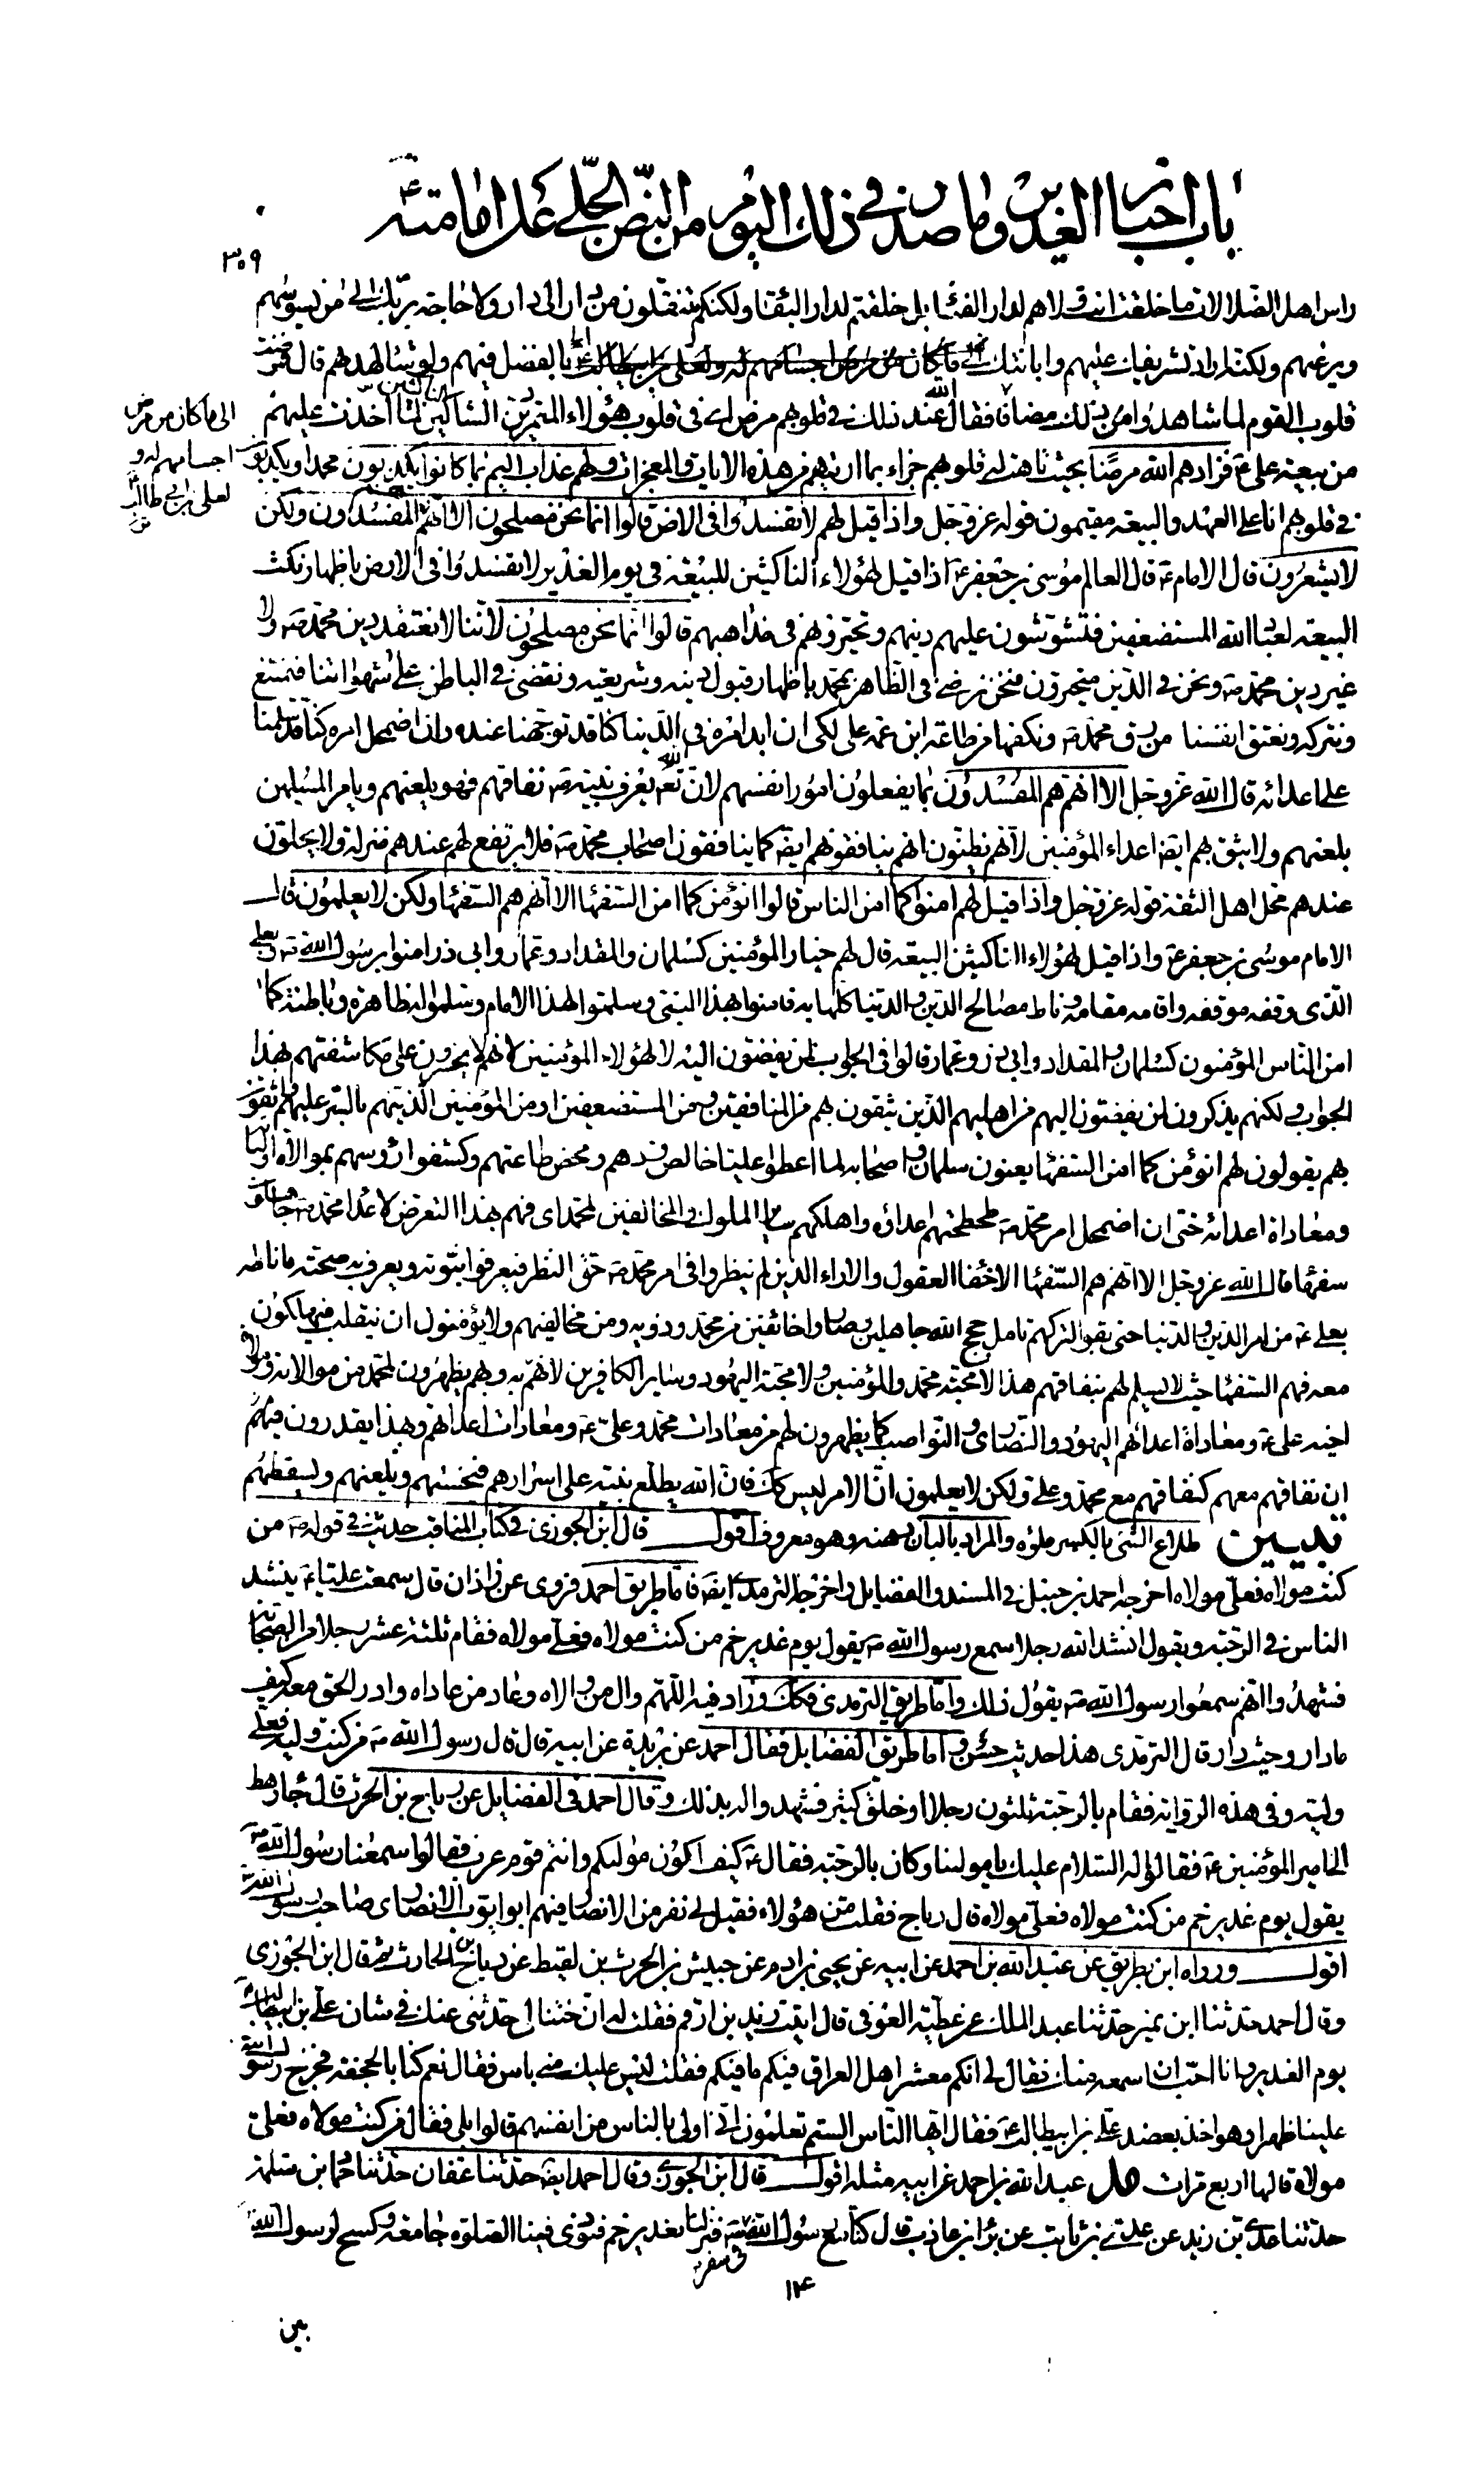 باب اخبار الغدير وما صدر فى ذلك اليوم من النص الجلى على امامته ع
٣٠٩
راس اهل الضلالات ما خلقت انت ولا هم لدار الفناء بل خلقتم لدار البقاء ولكنكم تنقلون من دار الى دار ولا حاجة بربك الى من يسوسهم
ويرعيهم ولكنه اراد تشريفك عليهم وابانتك بالفضل فيهم ولو شاء لهداهم قال فمرضت
قلوب القوم لما شاهدوا من ذلك مضافا
الى ما كان من مرض
اجسامهم له و
لعلى بن ابى طالب
فقال الله عند ذلك فى قلوبهم مرض اى فى قلوب هؤلاء المتمردين الشاكين الناكثين لما اخذت عليهم
من بيعة على ع فزادهم الله مرضا بحيث تاهت له قلوبهم جزاء بما اريتهم من هذه الايات والمعجزات ولهم عذاب اليم بما كانوا يكذبون محمدا ويكذبون
فى قلوبهم انا على العهد والبيعة مقيمون قوله عز وجل واذا قيل لهم لا تفسدوا فى الارض قالوا انما نحن مصلحون الا انهم هم المفسدون ولكن
لا يشعرون قال الامام ع قال العالم موسى بن جعفر ع اذا قيل لهؤلاء الناكثين للبيعة فى يوم الغدير لا تفسدوا فى الارض باظهار نكث
البيعة لعباد الله المستضعفين فتشوشون عليهم دينهم وتحيرونهم فى مذاهبهم قالوا انما نحن مصلحون لاننا لا نعتقد دين محمد ص ولا
غير دين محمد ص ونحن فى الدين متحيرون فنحن نرضى فى الظاهر بمحمد باظهار قبول دينه وشريعته ونقضى فى الباطن على شهواتنا فنمتنع
ونتركه ونعتق انفسنا من رق محمد ص ونكفها من طاعة ابن عمه على لكى ان ادل امره فى الدنيا كنا قد توجهنا عنده وان اضمحل امره كنا قد سلمنا
على اعدائه قال الله عز وجل الا انهم هم المفسدون بما يفعلون امور انفسهم لان الله تعالى يعرف نبيه ص نفاقهم فهو يلعنهم ويامر المسلمين
بلعنهم ولا يثق بهم ايضا اعداء المؤمنين لانهم يظنون انهم ينافقونهم ايضا كما ينافقون اصحاب محمد ص فلا يرتفع لهم عندهم منزلة ولا يحلون
عندهم محل اهل الثقة قوله عز وجل واذا قيل لهم امنوا كما امن الناس قالوا انؤمن كما امن السفهاء الا انهم هم السفهاء ولكن لا يعلمون قال
الامام موسى بن جعفر ع واذا قيل لهؤلاء الناكثين البيعة قال لهم خيار المؤمنين كسلمان والمقداد وعمار وابى ذر امنوا برسول الله ص وبعلى
الذى وقفه موقفه واقامه مقامه وناط مصالح الدين والدنيا كلها به فامنوا بهذا النبى وسلموا لهذا الامام وسلموا له ظاهره وباطنه كما
امن الناس المؤمنون كسلمان والمقداد وابى ذر وعمار قالوا فى الجواب لمن يفضون اليه لا لهؤلاء المؤمنين لانهم لا يجسرون على مكاشفتهم بهذا
الجواب ولكنهم يذكرون لمن يفضون اليهم من اهليهم الذين يثقون بهم من المنافقين ومن المستضعفين او من المؤمنين الذين هم بالستر عليهم واثقون
بهم يقولون لهم انؤمن كما امن السفهاء يعنون سلمان واصحابه لما اعطوا عليا خالص ودهم ومحض طاعتهم وكشفوا رؤسهم بموالاة اوليائه
ومعاداة اعدائه حتى ان اضمحل امر محمد ص طحطحهم اعداؤه واهلكهم سائر الملوك والمخالفين لمحمد اى فهم بهذا التعرض لاعداء محمد ص جاهلون
سفهاء قال الله عز وجل الا انهم هم السفهاء الاخفاء العقول والاراء الذين لم ينظروا فى امر محمد ص حق النظر فيعرفوا نبوته ويعرف به صحة ما ناطه
بعلى ع من امر الدين والدنيا حتى بقوا لتركهم تامل حجج الله جاهلين وصاروا خائفين من محمد وذويه ومن مخالفيهم ولا يؤمنون ان ينقلب فيهلكون
معه فهم السفهاء حيث لا يسلم لهم بنفاقهم هذا لا محبة محمد والمؤمنين ولا محبة اليهود وسائر الكافرين لانهم به وبهم يظهرون لمحمد من موالاته وموالاة
اخيه على ع ومعاداة اعدائهم اليهود والنصارى والنواصب كما يظهرون لهم من معادات محمد وعلى ع ومعادات اعدائهم وبهذا يقدرون فيهم
ان نفاقهم معهم كنفاقهم مع محمد وعلى ولكن لا يعلمون ان الامر ليس كك فان الله يطلع نبيه على اسرارهم فيخسهم ويلعنهم ويسقطهم
تبيين طلاع الشئ بالكسر ملؤه والمراد بالبان دهنه وهو معروف اقول قال ابن الجوزى فى كتاب المناقب حديث فى قوله ص من
كنت مولاه فعلى مولاه اخرجه احمد بن حنبل فى المسند والفضايل واخرجه الترمذى ايضا فاما طريق احمد فروى عن زاذان قال سمعت عليا ع ينشد
الناس فى الرحبة ويقول انشد الله رجلا سمع رسول الله ص يقول يوم غدير خم من كنت مولاه فعلى مولاه فقام ثلثة عشر رجلا من الصحابة
فشهدوا انهم سمعوا رسول الله ص يقول ذلك واما طريق الترمذى فكك وزاد فيه اللهم وال من والاه وعاد من عاداه وادر الحق معه كيف
ما دار وحيث دار قال الترمذى هذا حديث حسن واما طريق الفضايل فقال احمد عن بريدة عن ابيه قال قال رسول الله ص من كنت وليه فعلى
وليه وفى هذه الرواية فقام بالرحبة ثلثون رجلا او خلق كثير فشهدوا له بذلك وقال احمد فى الفضايل عن رياح بن الحرث قال جاء رهط
الى امير المؤمنين ع فقالوا له السلام عليك يا مولينا وكان بالرحبة فقال ع كيف اكون موليكم وانتم قوم عرب فقالوا سمعنا رسول الله ص
يقول يوم غدير خم من كنت مولاه فعلى مولاه قال رباح فقلت من هؤلاء فقيل لى نفر من الانصار فيهم ابو ايوب الانصارى صاحب رسول الله ص
اقول ورواه ابن بطريق عن عبد الله بن احمد عن ابيه عن يحيى بن ادم عن حبيش بن الحرث بن لقيط عن رياح بن الحارث ثم قال ابن الجوزى
وقال احمد حدثنا ابن نمير حدثنا عبد الملك عن عطية العوفى قال اتيت زيد بن ارقم فقلت له ان ختنا لى حدثنى عنك فى شان على بن ابيطالب
يوم الغدير وانا احب ان اسمعه منك فقال لى انكم معشر اهل العراق فيكم ما فيكم فقلت ليس عليك منى باس فقال نعم كنا بالجحفة فخرج رسول الله
علينا ظهرا وهو اخذ بعضد على بن ابيطالب ع فقال ايها الناس الستم تعلمون انى اولى بالناس من انفسهم قالوا بلى فقال من كنت مولاه فعلى
مولاه قالها اربع مرات مد عبد الله بن احمد عن ابيه مثله اقول قال ابن الجوزى وقال احمد ايضا حدثنا عفان حدثنا حماد بن سلمة
حدثنا على بن زيد عن عدى بن ثابت عن براء بن عاذب قال كنا مع رسول الله ص فى سفر فنزلنا بغدير خم فنودى فينا الصلوة جامعة وكسح لرسول الله
١٢٤
بين